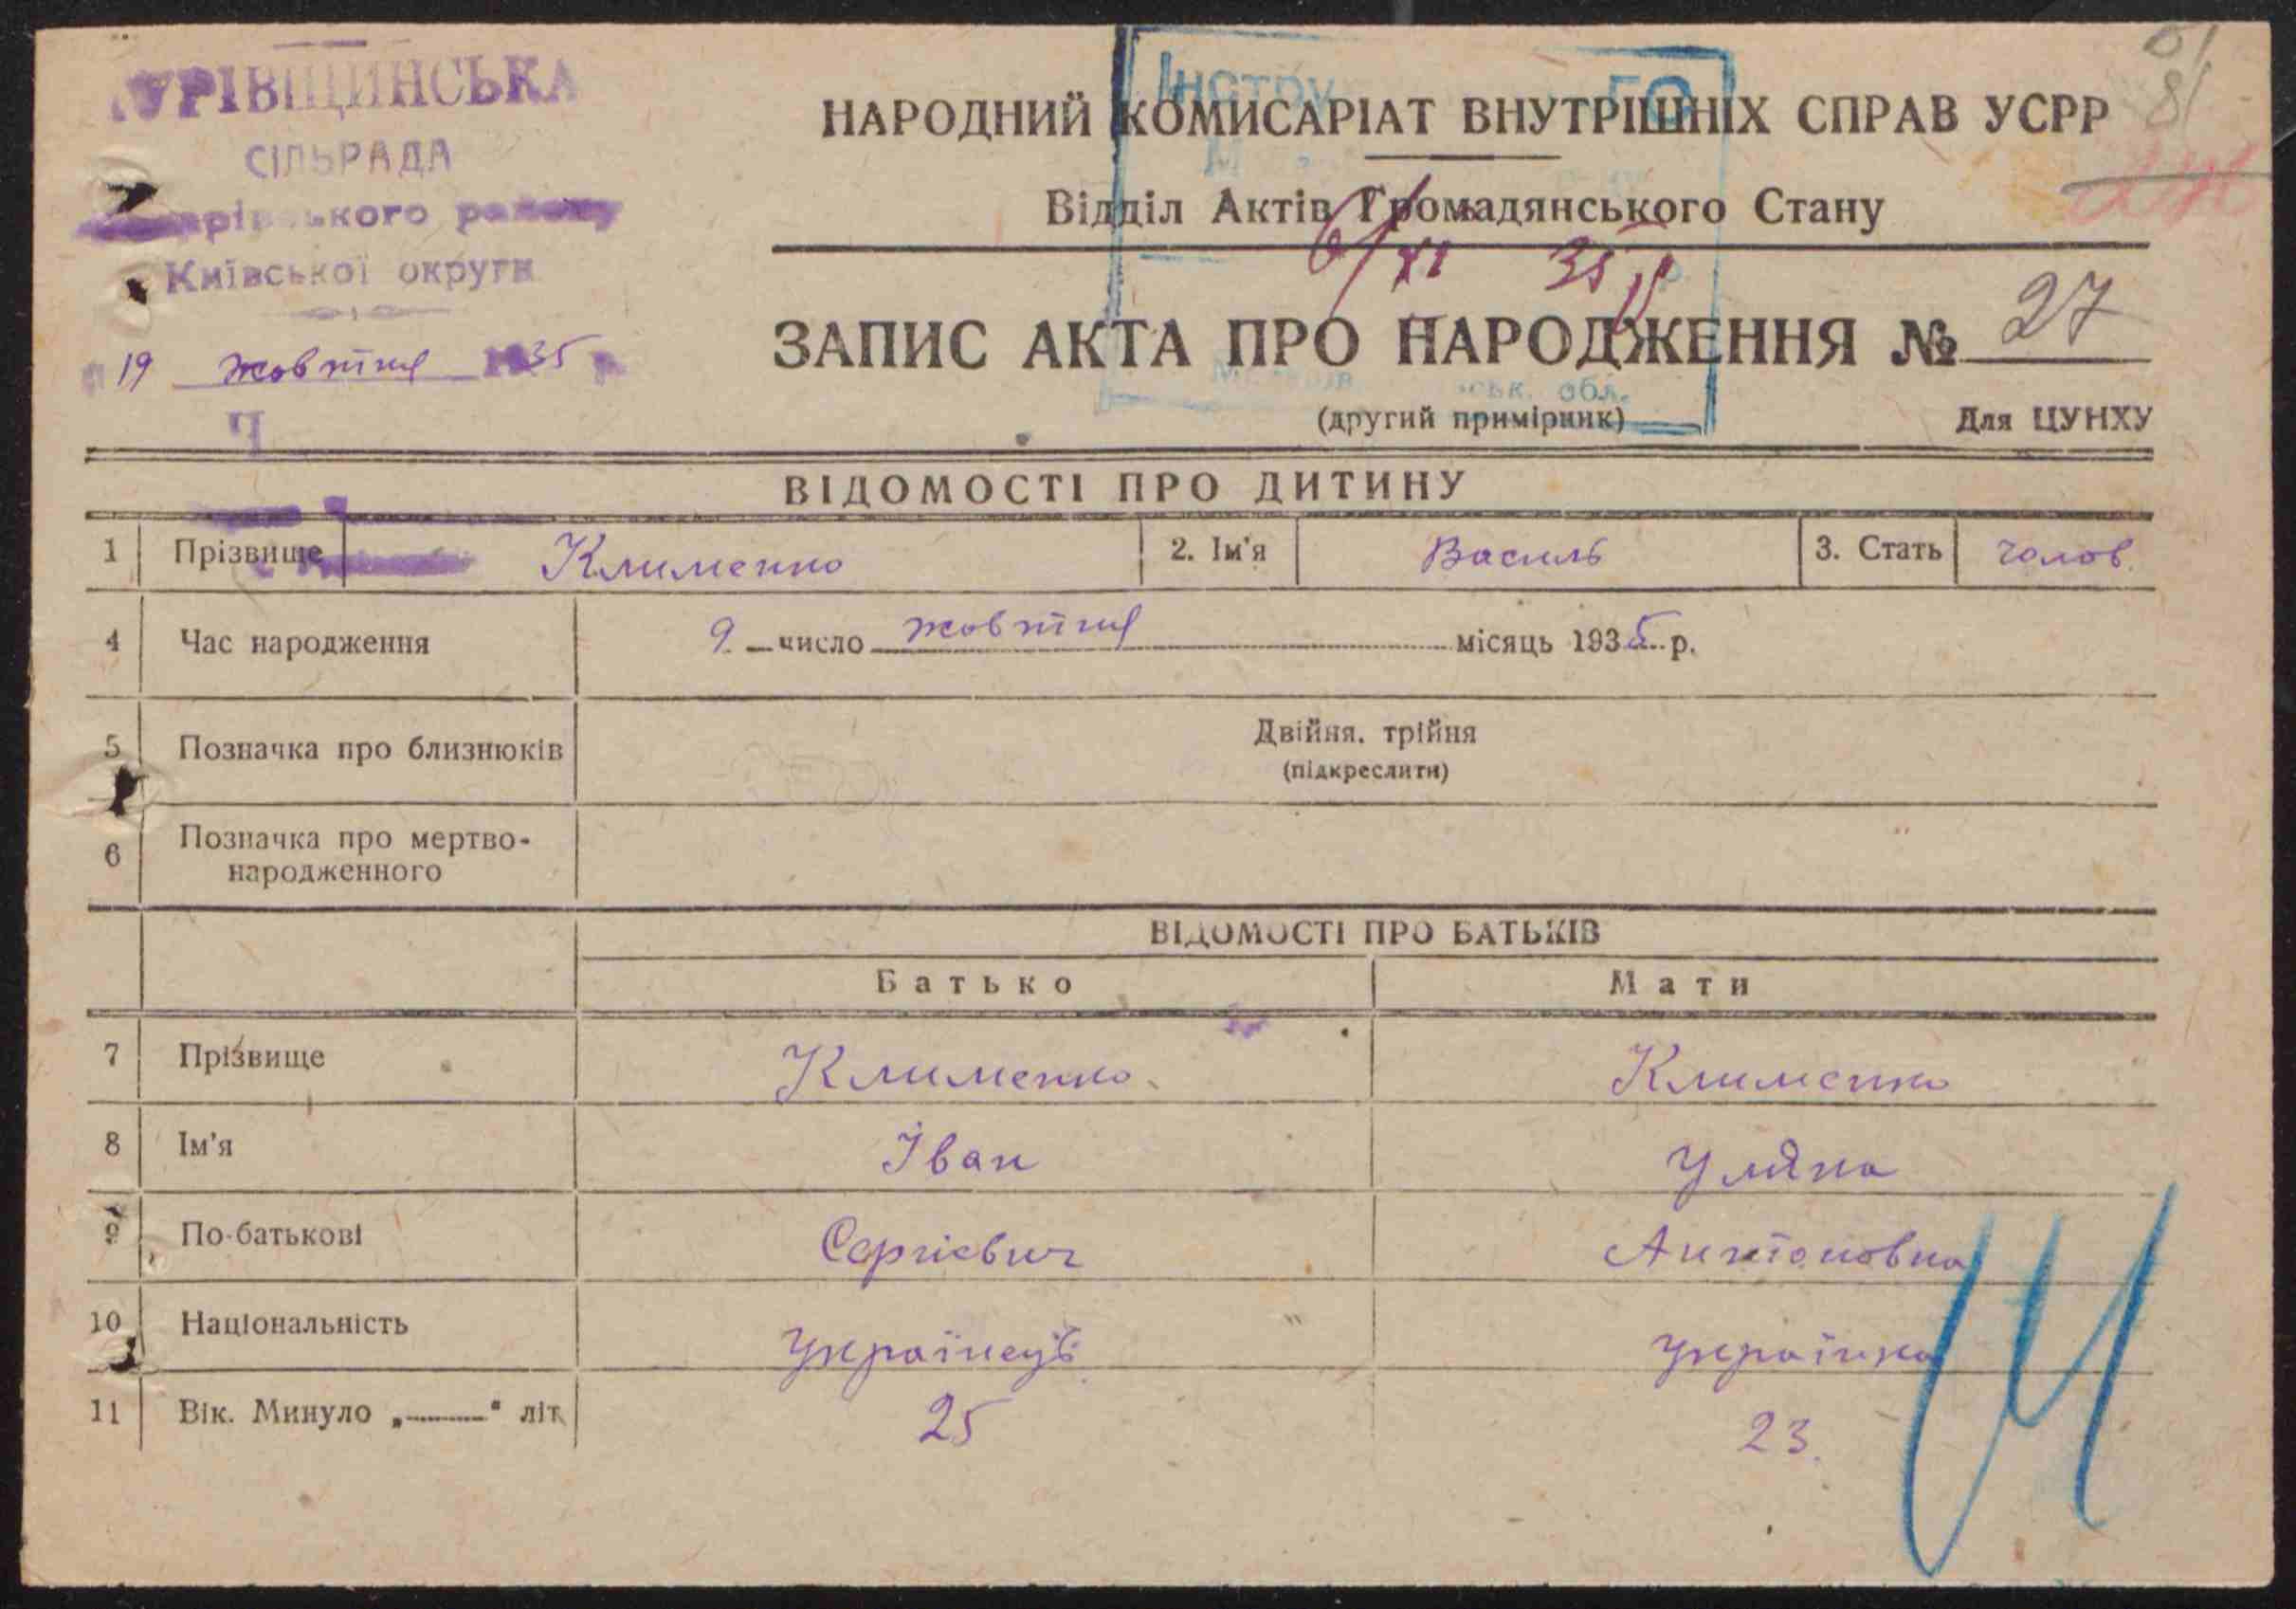 СІЛЬРАДА
Київської округи
19 жовтня 1935
НАРОДНИЙ КОМИСАРІАТ ВНУТРІШНІХ СПРАВ УСРР
Відділ Актів Громадянського Стану
6/XI 35
ЗАПИС АКТА ПРО НАРОДЖЕННЯ № 27
обл.
(другий примірник)
Для ЦУНХУ
ВІДОМОСТІ ПРО ДИТИНУ
1 Прізвище Клименко 2. Ім'я Василь 3. Стать чолов.
4 Час народження 9 число жовтня місяць 1935 р.
5 Позначка про близнюків Двійня, трійня
(підкреслити)
6 Позначка про мертво-
народженного
ВІДОМОСТІ ПРО БАТЬКІВ
Батько Мати
7 Прізвище Клименко Клименко
8 Ім'я Іван Уляна
9 По-батькові Сергієвич Антоновна
10 Національність Українець українка
11 Вік. Минуло „ “ літ 25 23.